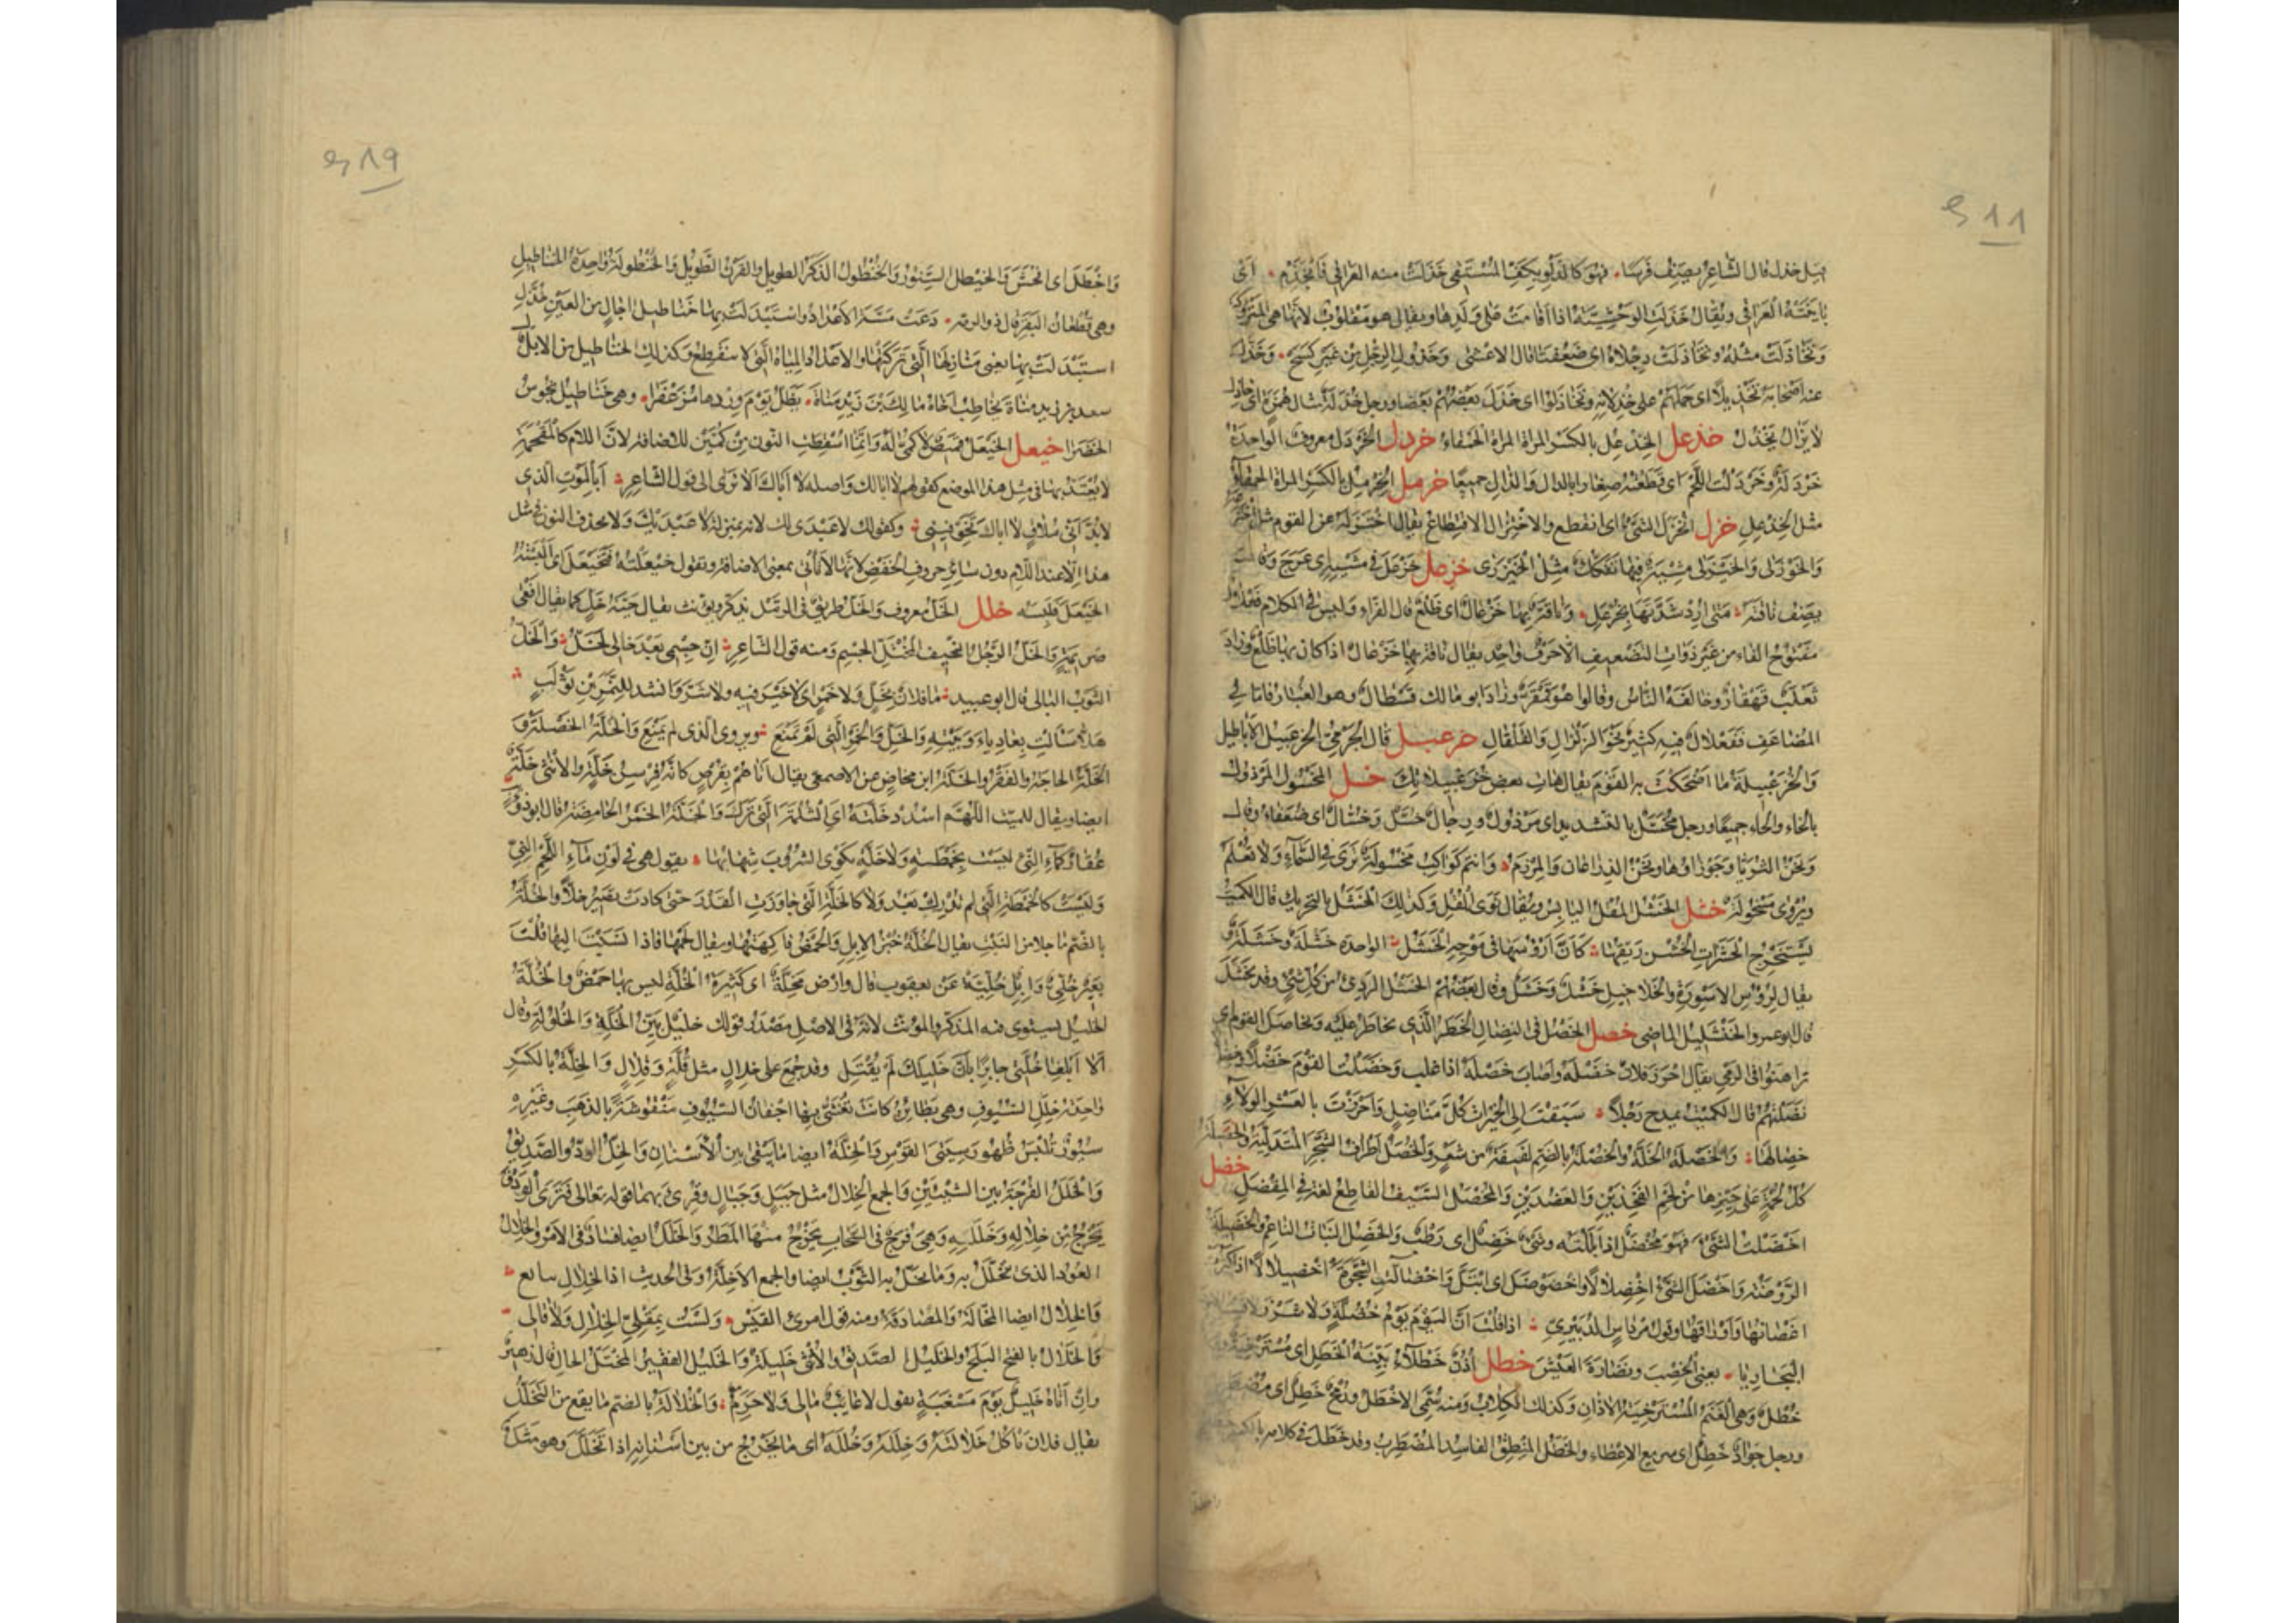 قال الشاعر يصف فرسا فهو كالدلو بكف المستقى خذلت منه العراقى فانجذم اى
باينته العراقى ويقال خذلت الوحشية اذا اقامت على ولدها ويقال هو مقلوب لانها هى المتروكة
وتخاذلت مثله وتخاذلت رجلاه اى ضعفتا قال الاعشى وخذول الرجل من غير كسح وخذل
عنه اصحابه تخذيلا اى حملهم على خذلانه وتخاذلوا اى خذل بعضهم بعضا ورجل خذلة مثال همزة اى خاذل
لا يزال يخذل خذعل الخذعل بالكسر المراة الحمقاء خردل الخردل معروف الواحدة
خردلة وخردلت اللحم اى قطعته صغارا بالدال والذال جميعا خرمل الخرمل بالكسر المراة الحمقاء
مثل الخذعل خزل انخزل الشئ اى انقطع والاختزال الاقتطاع يقال اختزله عن القوم مثل
والخوزلى والخيزلى مشية فيها تفكك مثل الخيزرى خزعل خزعل فى مشيه اى عرج وقال
يصف ناقته متى ارد شدتها تخزعل وناقة بها خزعال اى ظلع قال الفراء وليس فى الكلام فعلال
مفتوح الفاء من غير ذوات التضعيف الا حرف واحد يقال ناقة بها خزعال اذا كان بها ظلع وزاد
ثعلب قهقار وخالفه الناس وقالوا هو قهقر وزاد ابو مالك قسطال وهو الغبار فاما فى
المضاعف ففعلال فيه كثير نحو الزلزال والقلقال خزعبل قال الجرمى الخزعبيل الاباطيل
والخزعبيلة ما اضحكت به القوم يقال هات بعض خزعبيلاتك خسل المخسول المرذول
بالخاء والحاء جميعا ورجل مخسل بالتشديد اى مرذول ورجال خسل وخسال اى ضعفاء وقال
ونحن الثريا وجوزاؤها ونحن الذراعان والمرزم وانتم كواكب مخسولة ترى فى السماء ولا تعلم
ويروى مسخولة خشل الخشل المقل اليابس ويقال نوى المقل وكذلك الخشل بالتحريك قال الكميت
يستخرج الحشرات الخشن ريقها كان ارؤسها فى موجه الخشل الواحدة خشلة وخشلة و
يقال لرؤس الاسورة والخلاخيل خشل وخشل وقال بعضهم الخشل الردئ من كل شئ وقد تخشل
قال ابو عمرو الخنشليل الماضى خصل الخصل فى النضال الخطر الذى يخاطر عليه وتخاصل القوم اى
تراهنوا فى الرمى يقال احرز فلان خصله واصاب خصله اذا غلب وخصلت القوم خصلا وخصالا
نضلتهم قال الكميت يمدح رجلا سبقت الى الخيرات كل مناضل واحرزت بالعشر الولاء
خصالها والخصلة الخلة والخصلة بالضم لفيفة من شعر والخصل اطراف الشجر المتدلية والخصيلة
كل لحمة على حيزها من لحم الفخذين والعضدين والمخصل السيف القاطع لغة فى المقصل خضل
اخضلت الشئ فهو مخضل اذا بللته وشئ خضل اى رطب والخضل النبات الناعم والخضيلة
الروضة واخضل الشئ اخضلالا واخضوضل اى ابتل واخضالت الشجرة اخضيلالا اذا كثر
اغصانها واوراقها وقول مرداس الدبيرى اذا قلت ان اليوم يوم خضلة ولا شرز لاقيت
البجاريا يعنى الخصب ونضارة العيش خطل اذن خطلاء بينة الخطل اى مسترخية و
خطل وهى الغنم المسترخية الاذان وكذلك الكلاب ومنه سمى الاخطل ورمح خطل اى مضطرب
ورجل جواد خطل اى سريع الاعطاء والخطل المنطق الفاسد المضطرب وقد خطل فى كلامه بالكسر
واخطل اى افحش والخيطل السنور والخنظول الذكر الطويل والقرن الطويل والخنطولة واحدة الخناطيل
وهى قطعان البقر قال ذو الرمة دعت مية الاعداد واستبدلت بها خناطيل اجال من العين خذل
استبدلت بها يعنى منازلها التى تركتها والاعداد المياه التى لا تنقطع وكذلك الخناطيل من الابل
سعد بن زيد مناة يخاطب اخاه مالك بن زيد مناة يظل يوم وردها مزعفرا وهى خناطيل تجوس
الخضرا خيعل الخيعل قميص لا كمى له وانما اسقطت النون من كمين للاضافة لان اللام كالمقحمة
لا يعتد بها فى مثل هذا الموضع كقولهم لا ابا لك واصله لا اباك الا ترى الى قول الشاعر ابالموت الذى
لا بد انى ملاق لا اباك تخوفينى وكقولك لا عبدى لك لانه بمنزلة لا عبديك ولا تحذف النون فى مثل
هذا الا عند اللام دون سائر حروف الخفض لانها لا تاتى بمعنى الاضافة وتقول خيعلته فتخيعل اى البسته
الخيعل فلبسه خلل الخل معروف والخل طريق فى الرمل يذكر ويؤنث يقال حية خل كما يقال افعى
صريمة والخل الرجل النحيف المختل الجسم ومنه قول الشاعر ان جسمى بعد خالى لخل والخل
الثوب البالى قال ابو عبيد ما فلان بخل ولا خمر اى لا خير فيه ولا شر وانشد للنمر بن تولب
هلا سالت بعادياء وبيته والخل والخمر التى لم تمنع ويروى الذى لم يمنع والخلة الخصلة و
الخلة الحاجة والفقر والخلة ابن مخاض عن الاصمعى يقال اتاهم بقرص كانه فرسن خلة والانثى خلة
ايضا ويقال للميت اللهم اسدد خلته اى الثلمة التى ترك والخلة الخمر الحامضة قال ابو ذؤيب
عقار كماء النئ ليست بخمطة ولا خلة يكوى الشروب شهابها يقول هى فى لون ماء اللحم النئ
وليست كالخمطة التى لم تدرك بعد ولا كالخلة التى جاوزت القدر حتى كادت تصير خلا والخلة
بالضم ما حلا من النبت يقال الخلة خبز الابل والحمض فاكهتها ويقال لحمها فاذا نسبت اليها قلت
بعير خلى وابل خلية عن يعقوب قال وارض مخلة اى كثيرة الخلة ليس بها حمض والخلة
الخليل يستوى فيه المذكر والمؤنث لانه فى الاصل مصدر قولك خليل بين الخلة والخلولة وقال
الا ابلغا خلتى جابرا بان خليلك لم يقتل وقد جمع على خلال مثل قلة وقلال والخلة بالكسر
واحدة خلل السيوف وهى بطائن كانت تغشى بها اجفان السيوف منقوشة بالذهب وغيره
سيور تلبس ظهور سيتى القوس والخلة ايضا ما يبقى بين الاسنان والخل الود والصديق
والخلل الفرجة بين الشيئين والجمع الخلال مثل جبل وجبال وقرئ بهما قوله تعالى فترى الودق
يخرج من خلاله وخلله وهى فرج فى السحاب يخرج منها المطر والخلل ايضا فساد فى الامر والخلال
العود الذى يتخلل به وما يخل به الثوب ايضا والجمع الاخلة وفى الحديث اذا الخلال نبايع
والخلال ايضا المخالة والمصادقة ومنه قول امرئ القيس ولست بمقلى الخلال ولا قالى
والخلال بالفتح البلح والخليل الصديق والانثى خليلة والخليل الفقير المختل الحال قال زهير
وان اتاه خليل يوم مسغبة يقول لا غائب مالى ولا حرم والخلالة بالضم ما يقع من التخلل
يقال فلان ياكل خلالته وخلله وخللته اى ما يخرج من بين اسنانه اذا تخلل وهو مثل